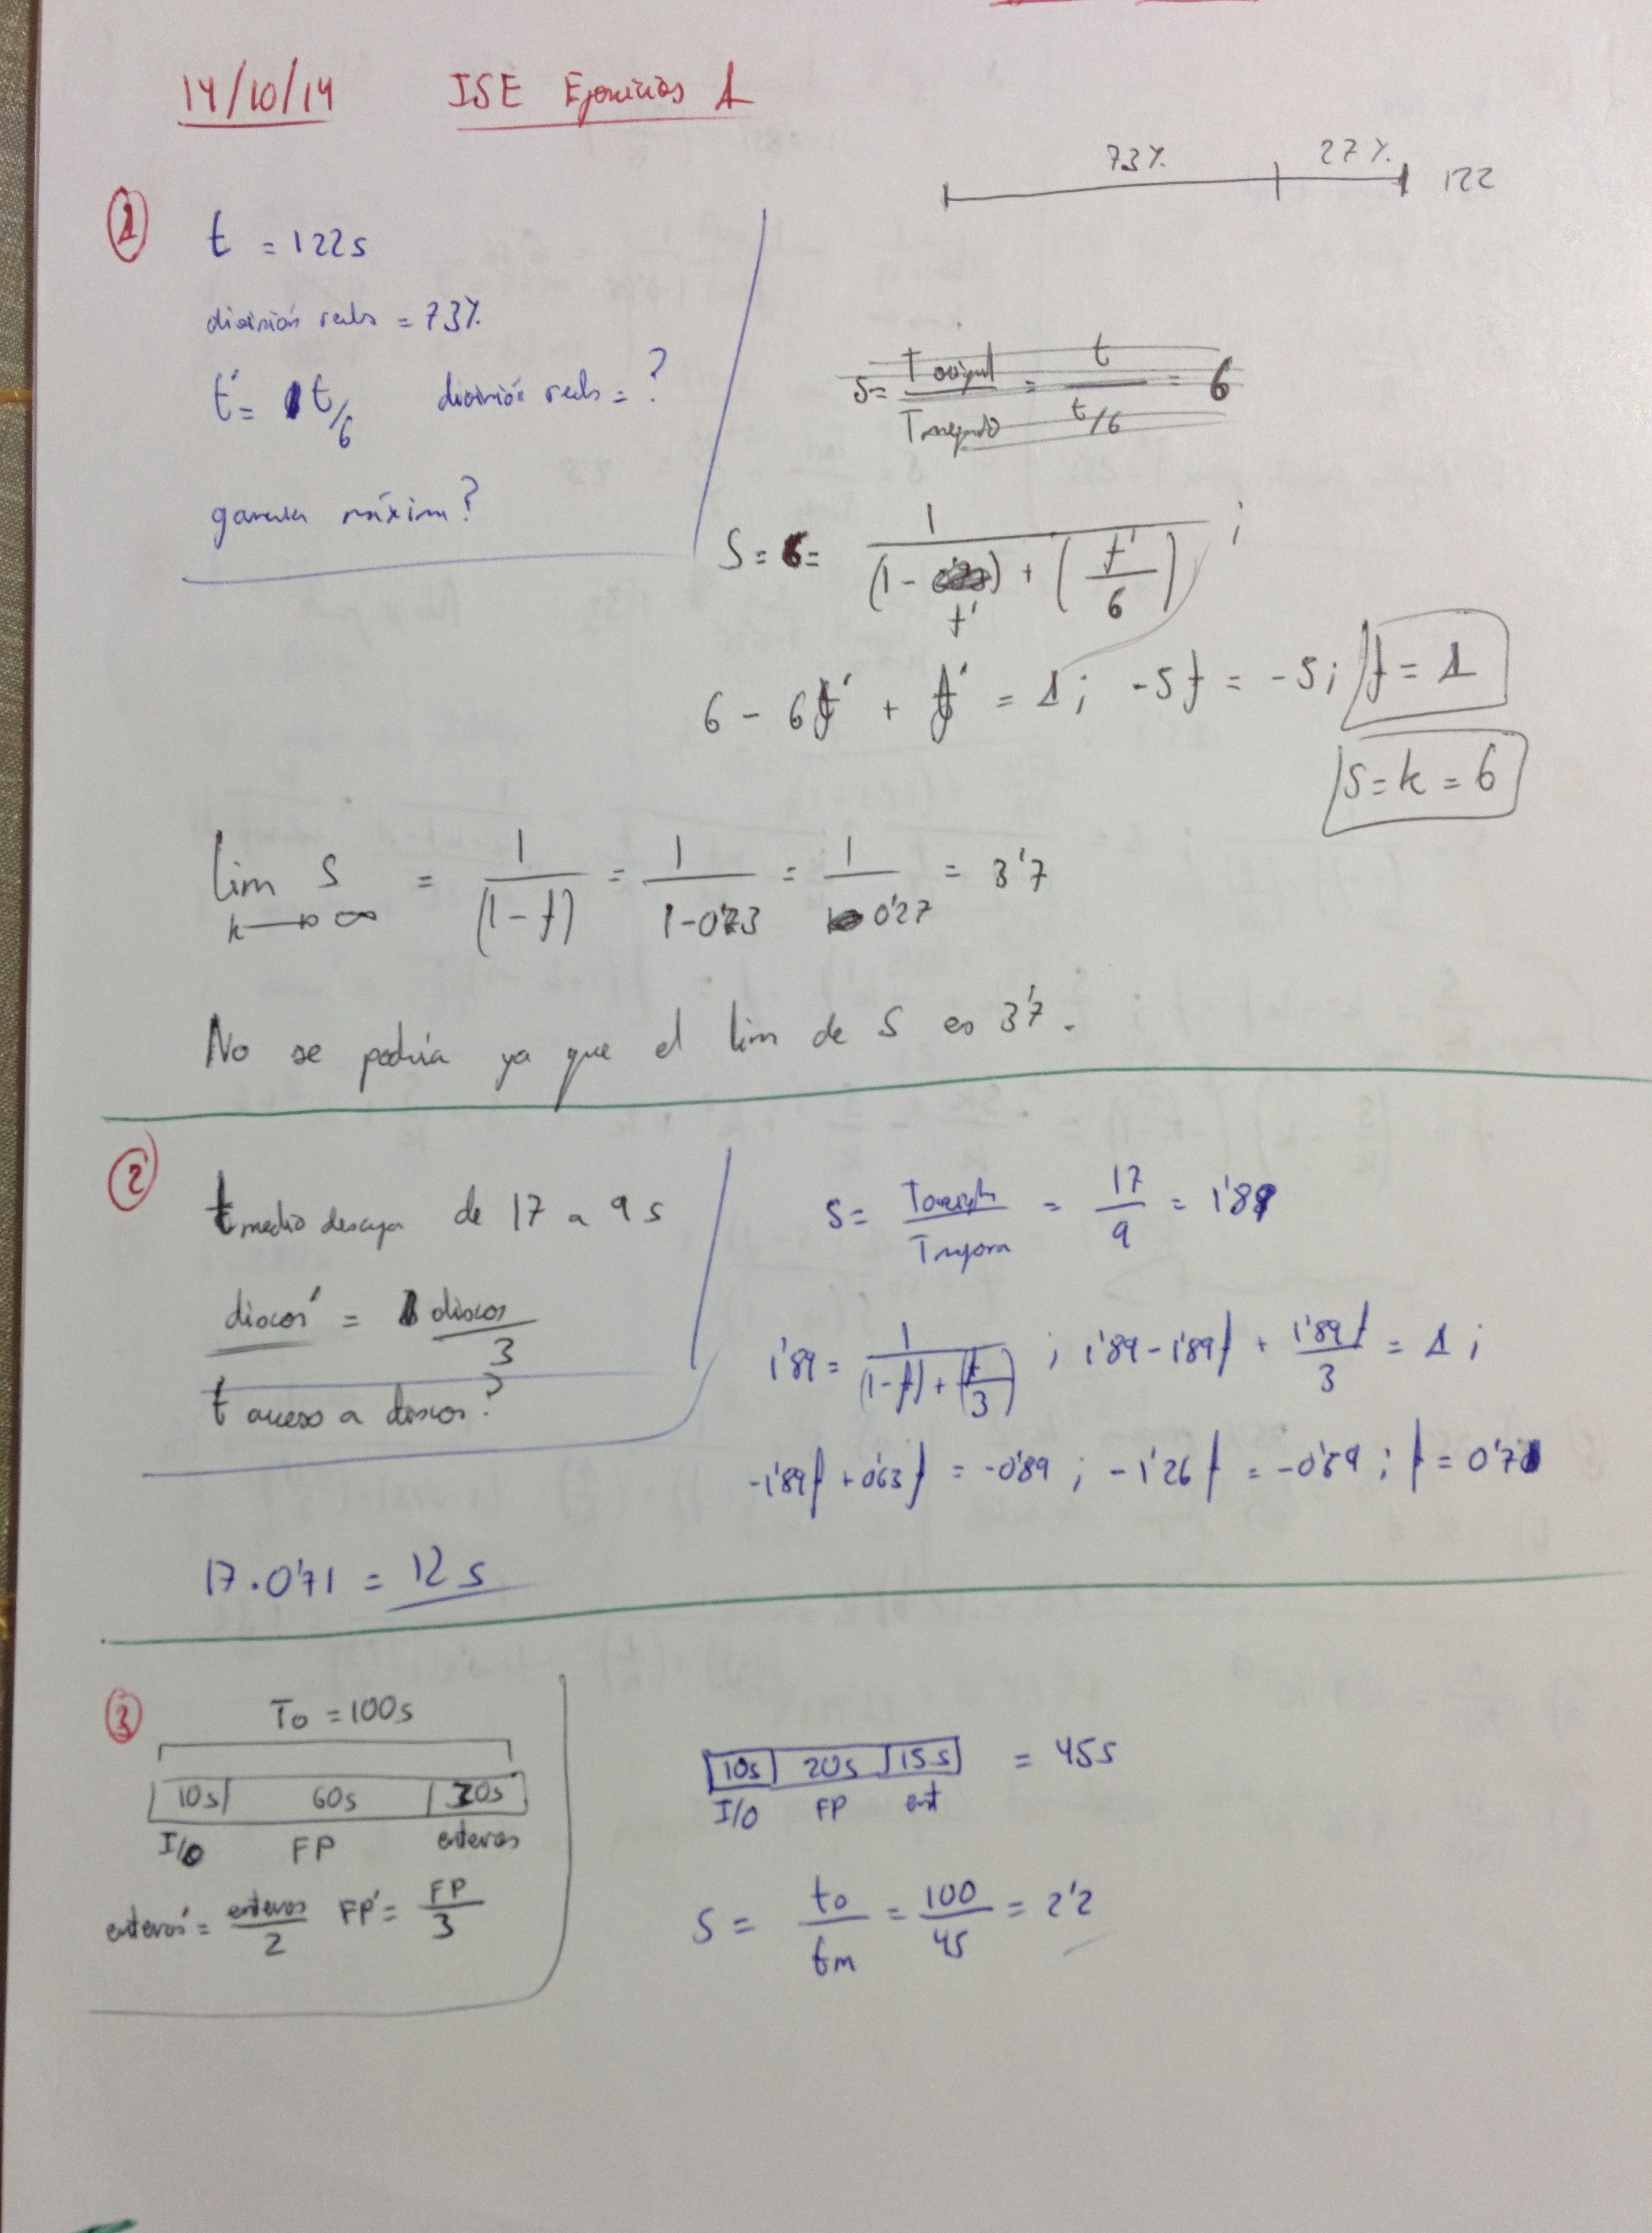 14/10/14 ISE Ejercicios 1
73% 27% 122
1
t = 122s
división reales = 73%
t' = t/6 división reales = ?
ganancia máxima?
S = T original / T mejorado = t / t/6 = 6
S = 6 = 1 / (1 - f') + (f'/6) ;
6 - 6f' + f' = 1 ; -5f = -5 ; f = 1
S = k = 6
lim S k→∞ = 1/(1-f) = 1/1-0'73 = 1/0'27 = 3'7
No se podría ya que el lim de S es 3'7.
2
t medio descarga de 17 a 9 s
discos' = discos/3
t acceso a discos?
S = / = 17/9 = 1'89
1'89 = 1/(1-f) + (f/3) ; 1'89 - 1'89f + 1'89f/3 = 1 ;
-1'89f + 0'63f = -0'89 ; -1'26f = -0'89 ; f = 0'71
17·0'71 = 12 s
3
To = 100s
10s 60s 30s
I/O FP enteros
enteros' = enteros/2 FP' = FP/3
10s 20s 15s = 45s
I/O FP ent
S = to/tm = 100/45 = 2'2